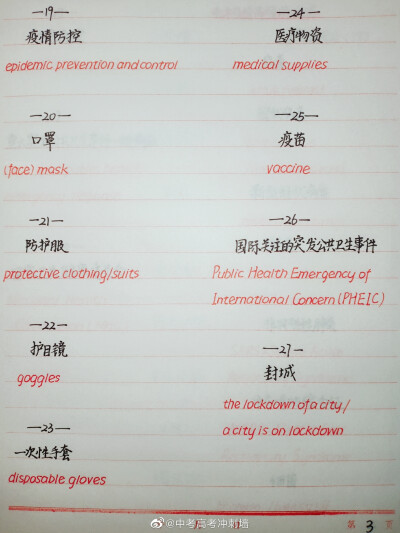 —19—
疫情防控
epidemic prevention and control
—20—
口罩
(face) mask
—21—
防护服
protective clothing/suits
—22—
护目镜
goggles
—23—
一次性手套
disposable gloves
—24—
医疗物资
medical supplies
—25—
疫苗
vaccine
—26—
国际关注的突发公共卫生事件
Public Health Emergency of
International Concern (PHEIC)
—27—
封城
the lockdown of a city/
a city is on lockdown
@中考高考冲刺墙
第 3 页